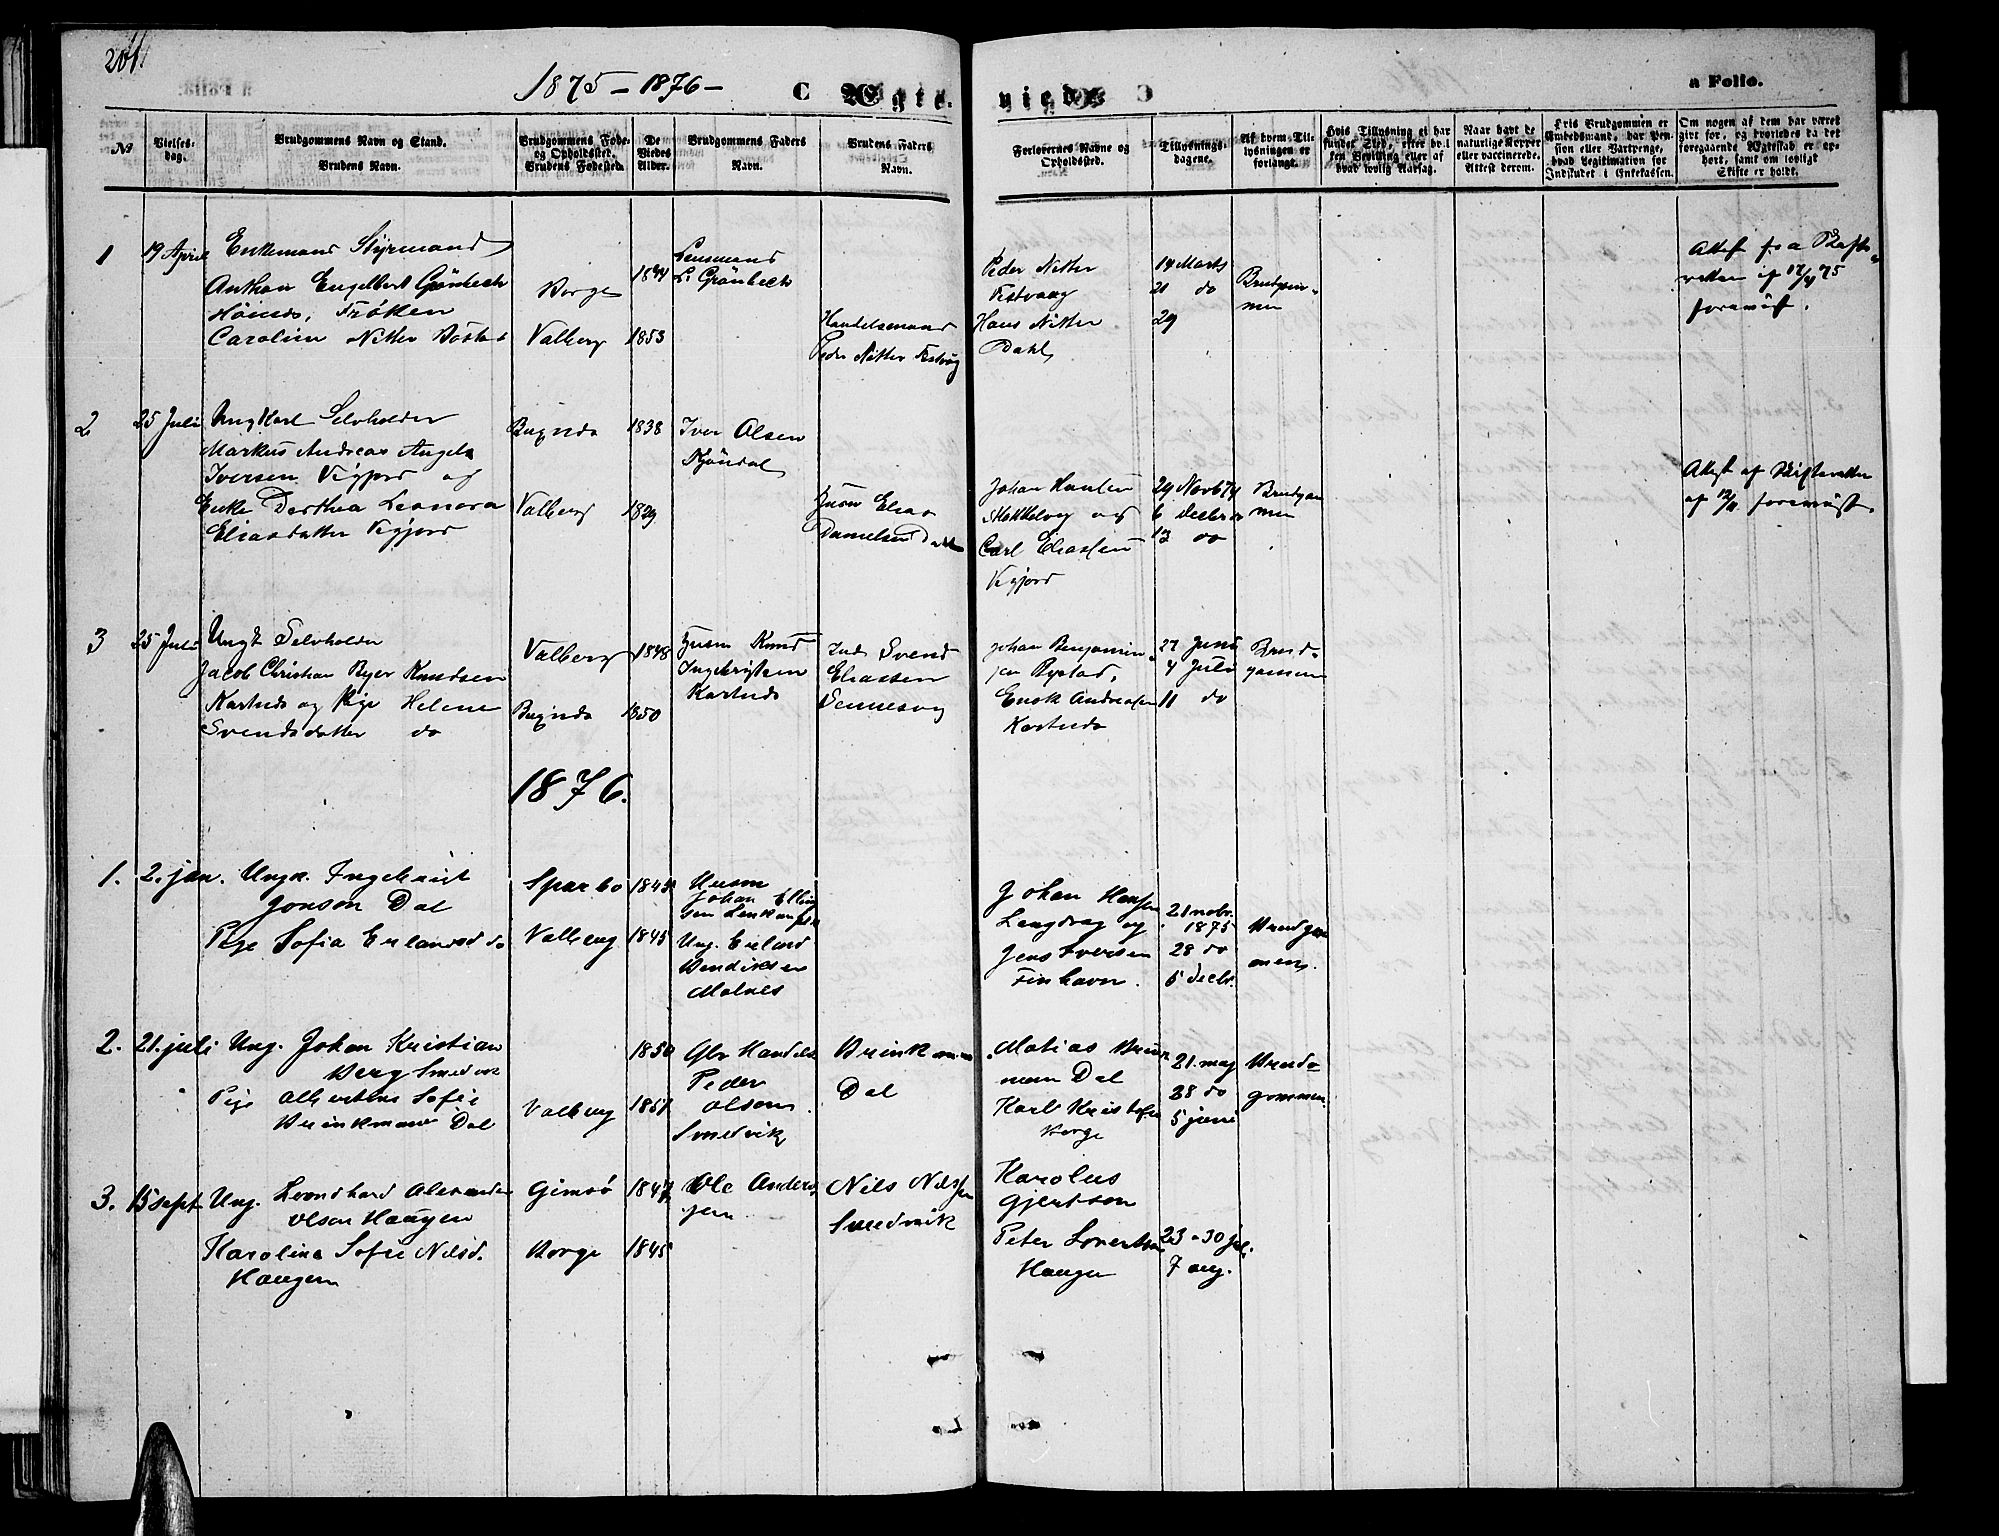 201
1875 - 1876 -
C Ægte.
viede C
a Folio.
№
Vielses-
dag.
Brudgommens Navn og Stand.
Brudens Navn.
Brudgommens Føde-
og Opholdssted.
Brudens Fødested.
De
Viedes
Alder.
Brudgommens Faders
Navn.
Brudens Faders
Navn.
Forlovernes Navne og
Opholdssted.
Tillysnings-
dagene.
Af hvem Til-
lysningen er
forlangt.
Hvis Tillysning ei har
fundet Sted, efter hvil-
ken Bevilling eller af
hvad lovlig Aarsag.
Naar havt de
naturlige Kopper
eller vaccinerede.
Attest derom.
Hvis Brudgommen er
Embedsmand, har Pen-
sion eller Vartpenge,
hvad Legitimation for
Indskudet i Enkekassen.
Om nogen af dem har været
gift før, og hvorledes da det
foregaaende Ægteskab er op-
hørt, samt om lovligt
Skifte er holdt.
1
19 April
Enkemand Styrmand
Anthon Engelbert Grönbech
Frøken
Caroline Nitter
Borge
Valberg
1853
Lensmand
L. Grönbech
Handelsmand
Peder Nitter Festvåg
Peder Nitter
Festvaag
Hans Nitter
Dahl
14 Marts
21 do
29
Brudgom-
men
Attest fra Skifte-
retten af 17/4 75
forevist.
2
25 Juli
Ungkarl Selvholder
Markus Andreas Angel
Iversen Vigjord og
Enke Dorthea Leonora
Eliasdatter Vigjord
Buxnæs
Valberg
1838
1829
Iver Olsen
Husm Elias
Danielsen Dahl
Johan Hansen
og
Carl Eliassen
Vigjord
29 Novb 74
6 Decbr
13 do
Brudgom
men
Attest af Skifteretten
forevist.
3
25 Juli
Ungk Selvholder
Jacob Christian Byer Knudsen
og Pige Helene
Svendsdatter do
Valberg
Buxnæs
1848
1850
Husm Knud
Ingebrigtsen
Inds Svend
Eliassen
Sennesvig
Johan Benjamin-
sen Rystad,
Enok Andreasen
27 Juni
4 Juli
11 do
Brud-
gommen
1876.
1.
2. jan.
Ungk. Ingebrigt
Jonson Dal
Pige Sofia Erlandsd do
Sparbo
Valberg
1845
1845
Husm
Johan Elling
sen
Ung. Erland
Bendiksen
Molnes
Johan Hansen
Langvag og
Jens Iversen
Finhavn.
21 nobr.
1875
28 do
5 Decbr.
Brudgom
men.
2.
21. juli
Ung. Johan Kristian
Berg Smedvik
Pige Albertine Sofie
Brinkmann Dal
Valberg
1850
1851
Glv Handels
Peder
Olsen
Smedvik
Brinkmann
Dal
Matias Brink
mann Dal
Karl Kristofer
Borge
21. maj
28 do
5 juni
Brud-
gommen
3.
15 sept.
Ung. Leonhard Alexander
Olsen Haugen
Karolina Sofie Nilsd.
Haugen
Gimsø
Borge
1847
1845
Ole Anders
sen
Nils Nilssen
Smedvik
Karolus
Gjertsen
Peter Lorentsen
Haugen
23 - 30 jul.
7 aug.